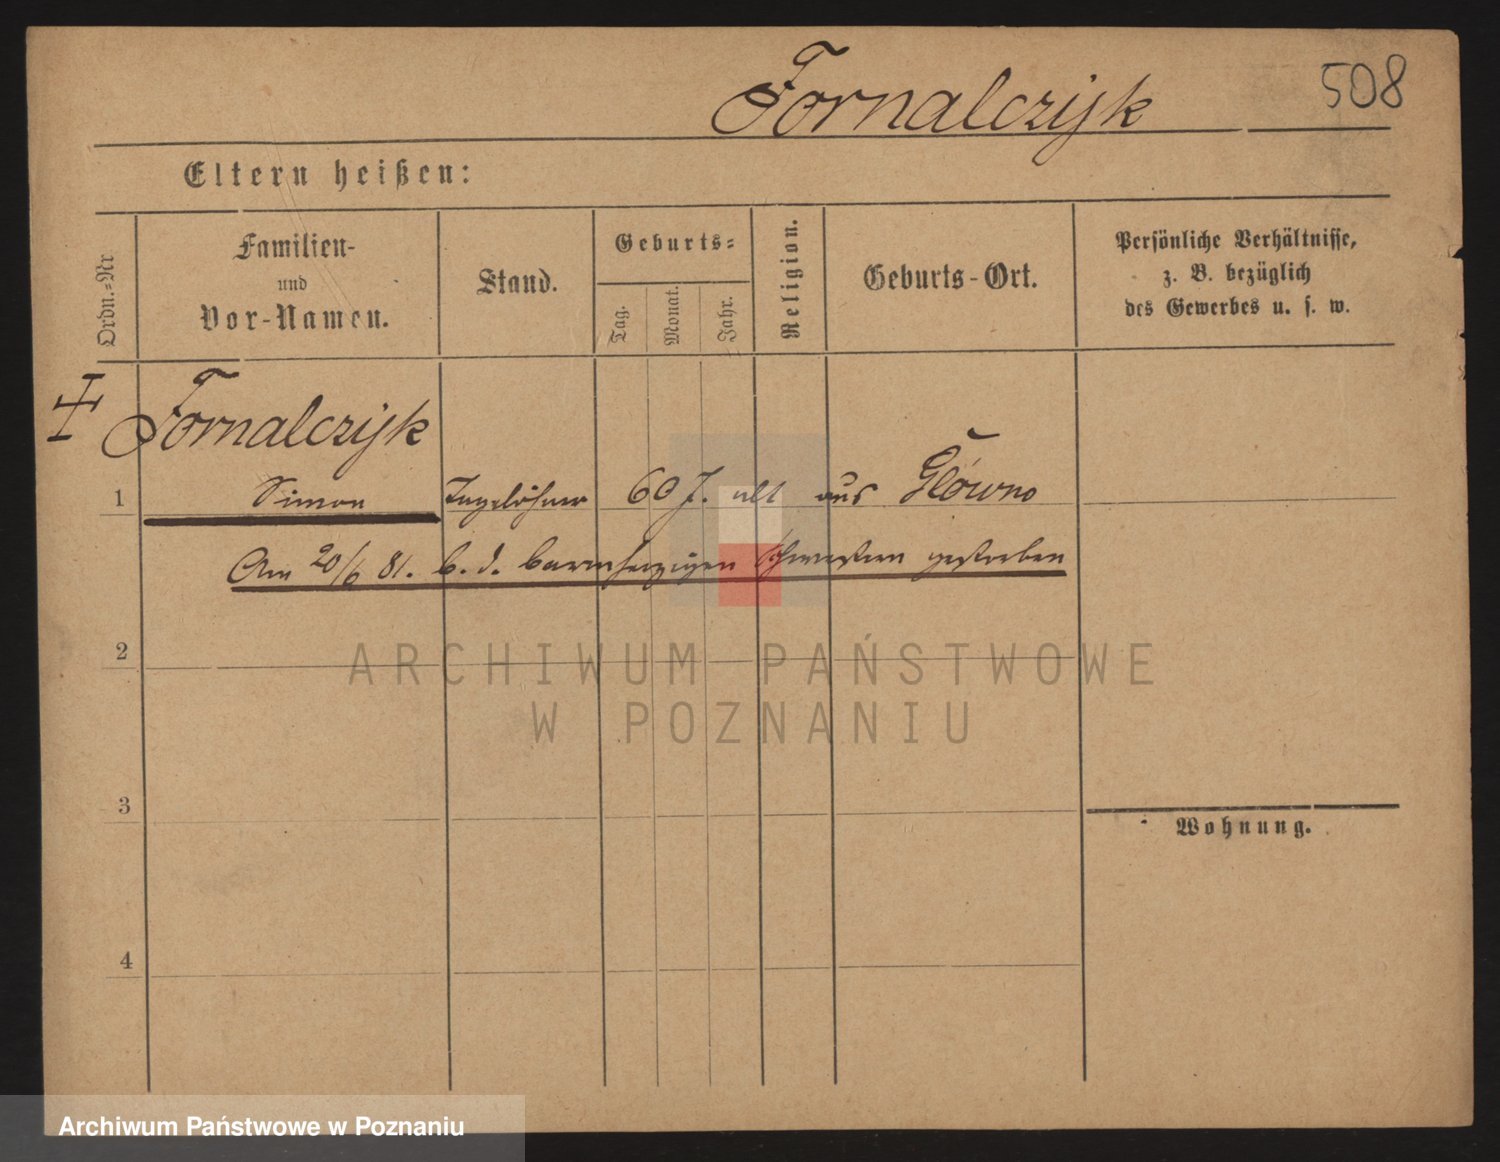 Fornalczyk 508
Eltern heißen:
Ordn.=Nr
Familien-
und
Vor-Namen.
Stand.
Geburts=
Tag.
Monat.
Jahr.
Religion.
Geburts-Ort.
Persönliche Verhältnisse,
z. B. bezüglich
des Gewerbes u. s. w.
Fornalczyk
1 Simon Tagelöhner 60 J. alt aus Główno
Am 20/6 81. b. d. barmherzigen Schwestern gestorben
2
ARCHIWUM PAŃSTWOWE
W POZNANIU
3
Wohnung.
4
Archiwum Państwowe w Poznaniu